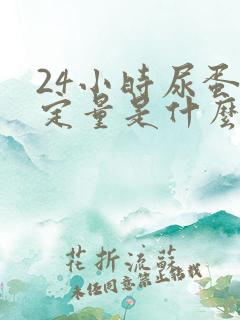 24小時尿蛋
定量是什麼
花折流蘇
未经同意禁止搭载